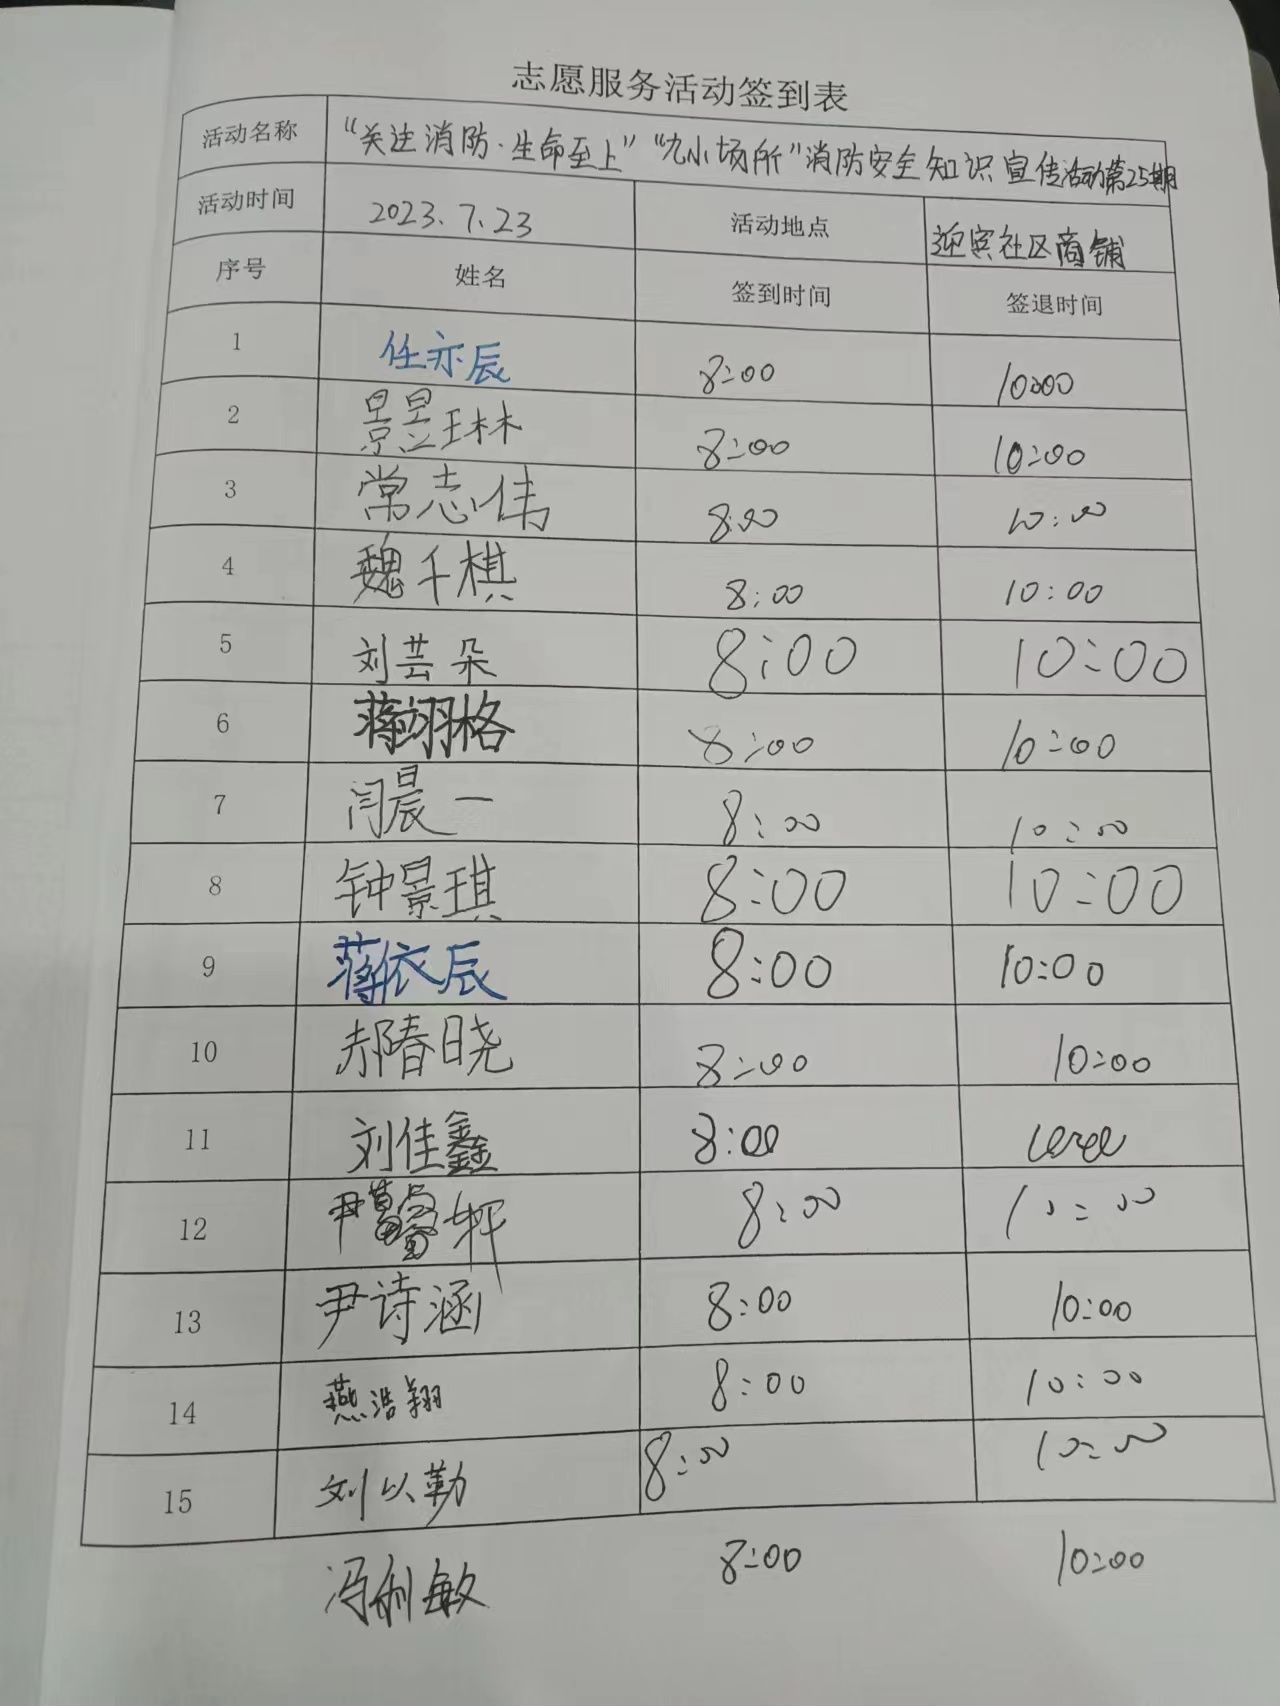 志愿服务活动签到表
活动名称 “关注消防·生命至上”“九小场所”消防安全知识宣传活动第25期
活动时间 2023.7.23 活动地点 迎宾社区商铺
序号 姓名 签到时间 签退时间
1 任亦辰 8:00 10:00
2 景昱琳 8:00 10:00
3 常志伟 8:00 10:00
4 魏千棋 8:00 10:00
5 刘芸朵 8:00 10:00
6 蒋翊格 8:00 10:00
7 闫晨一 8:00 10:00
8 钟景琪 8:00 10:00
9 蒋依辰 8:00 10:00
10 郝春晓 8:00 10:00
11 刘佳鑫 8:00 10:00
12 尹 轩 8:00 10:00
13 尹诗涵 8:00 10:00
14 燕浩翔 8:00 10:00
15 刘以勤 8:00 10:00
冯利敏 8:00 10:00